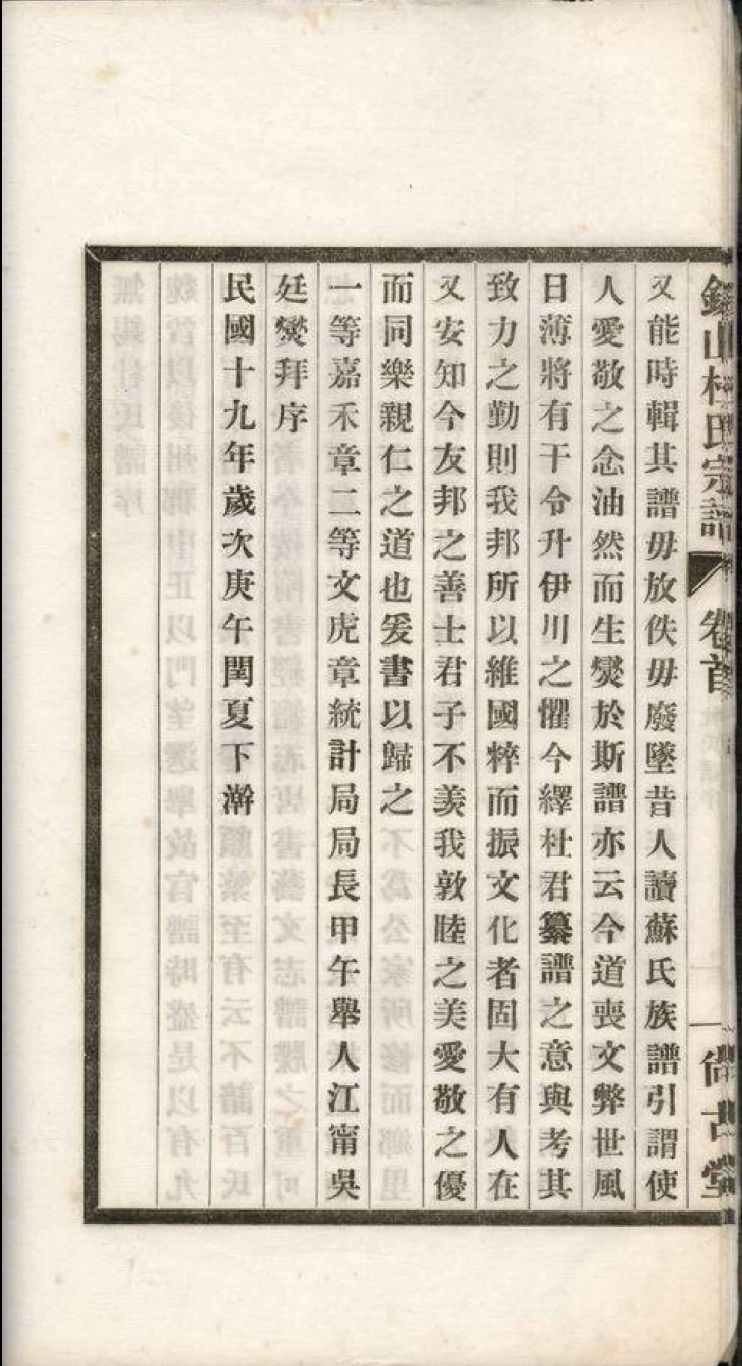 山杜氏宗譜 卷首 尚古堂
又能時輯其譜毋放佚毋廢墜昔人讀蘇氏族譜引謂使
人愛敬之念油然而生爕於斯譜亦云今道喪文弊世風
日薄將有干令升伊川之懼今繹杜君纂譜之意與考其
致力之勤則我邦所以維國粹而振文化者固大有人在
又安知今友邦之善士君子不羨我敦睦之美愛敬之優
而同樂親仁之道也爰書以歸之
一等嘉禾章二等文虎章統計局局長甲午舉人江甯吳
廷爕拜序
民國十九年歲次庚午閏夏下澣